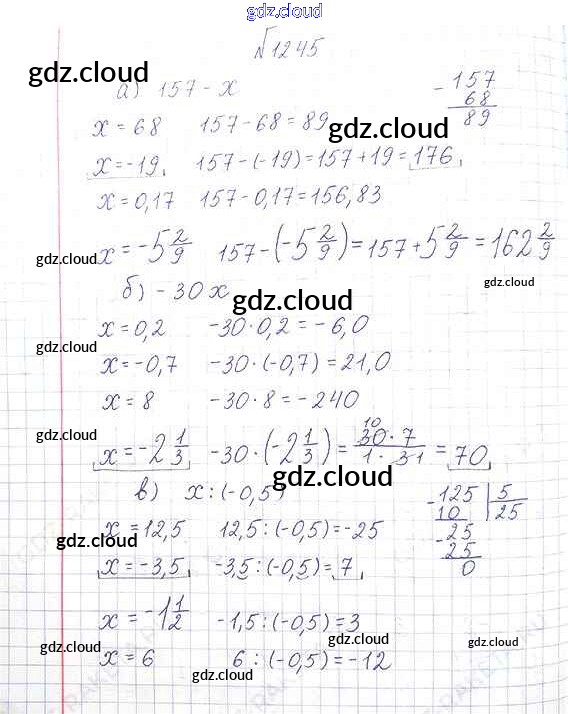 gdz.cloud
№1245
gdz.cloud
а) 157 - x
x = 68 157 - 68 = 89
- 157
68
89
gdz.cloud
x = -19, 157 - (-19) = 157 + 19 = 176,
x = 0,17 157 - 0,17 = 156,83
x = -5 2/9 157 - (-5 2/9) = 157 + 5 2/9 = 162 2/9
gdz.cloud
gdz.cloud
б) - 30x
gdz.cloud
x = 0,2 -30 · 0,2 = -6,0
gdz.cloud
x = -0,7 -30 · (-0,7) = 21,0
x = 8 -30 · 8 = -240
gdz.cloud
x = -2 1/3 -30 · (-2 1/3) = 10 30 · 7 / 1 · 3 1 = 70
gdz.cloud
в) x : (-0,5)
- 125 | 5
10 25
- 25
25
0
x = 12,5 12,5 : (-0,5) = -25
gdz.cloud
gdz.cloud
x = -3,5 -3,5 : (-0,5) = 7,
x = -1 1/2 -1,5 : (-0,5) = 3
gdz.cloud
gdz.cloud
gdz.cloud
x = 6 6 : (-0,5) = -12
gdz.cloud